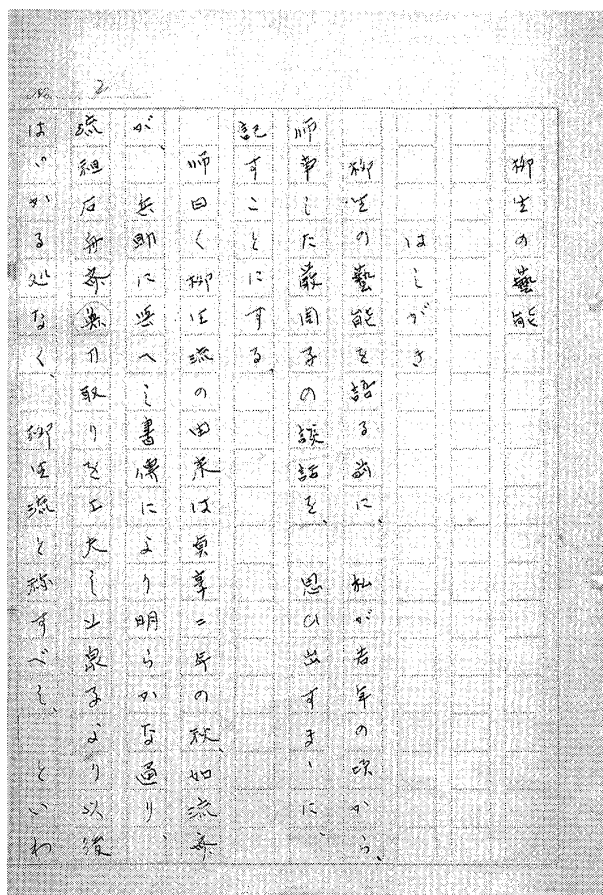 No. 2
柳生の藝能
はしがき
柳生の藝能を語る前に、私が若年の頃から、
師事した厳周子の談話を、思ひ出すまゝに、
記すことにする。
師曰く柳生流の由来は貞享二年の秋、如流斎
が、兵助に与へし書傳により明らかな通り、
流祖石舟斎無刀取りを工夫し上泉子より以後
はいかる処なく、柳生流と称すべし、といわ